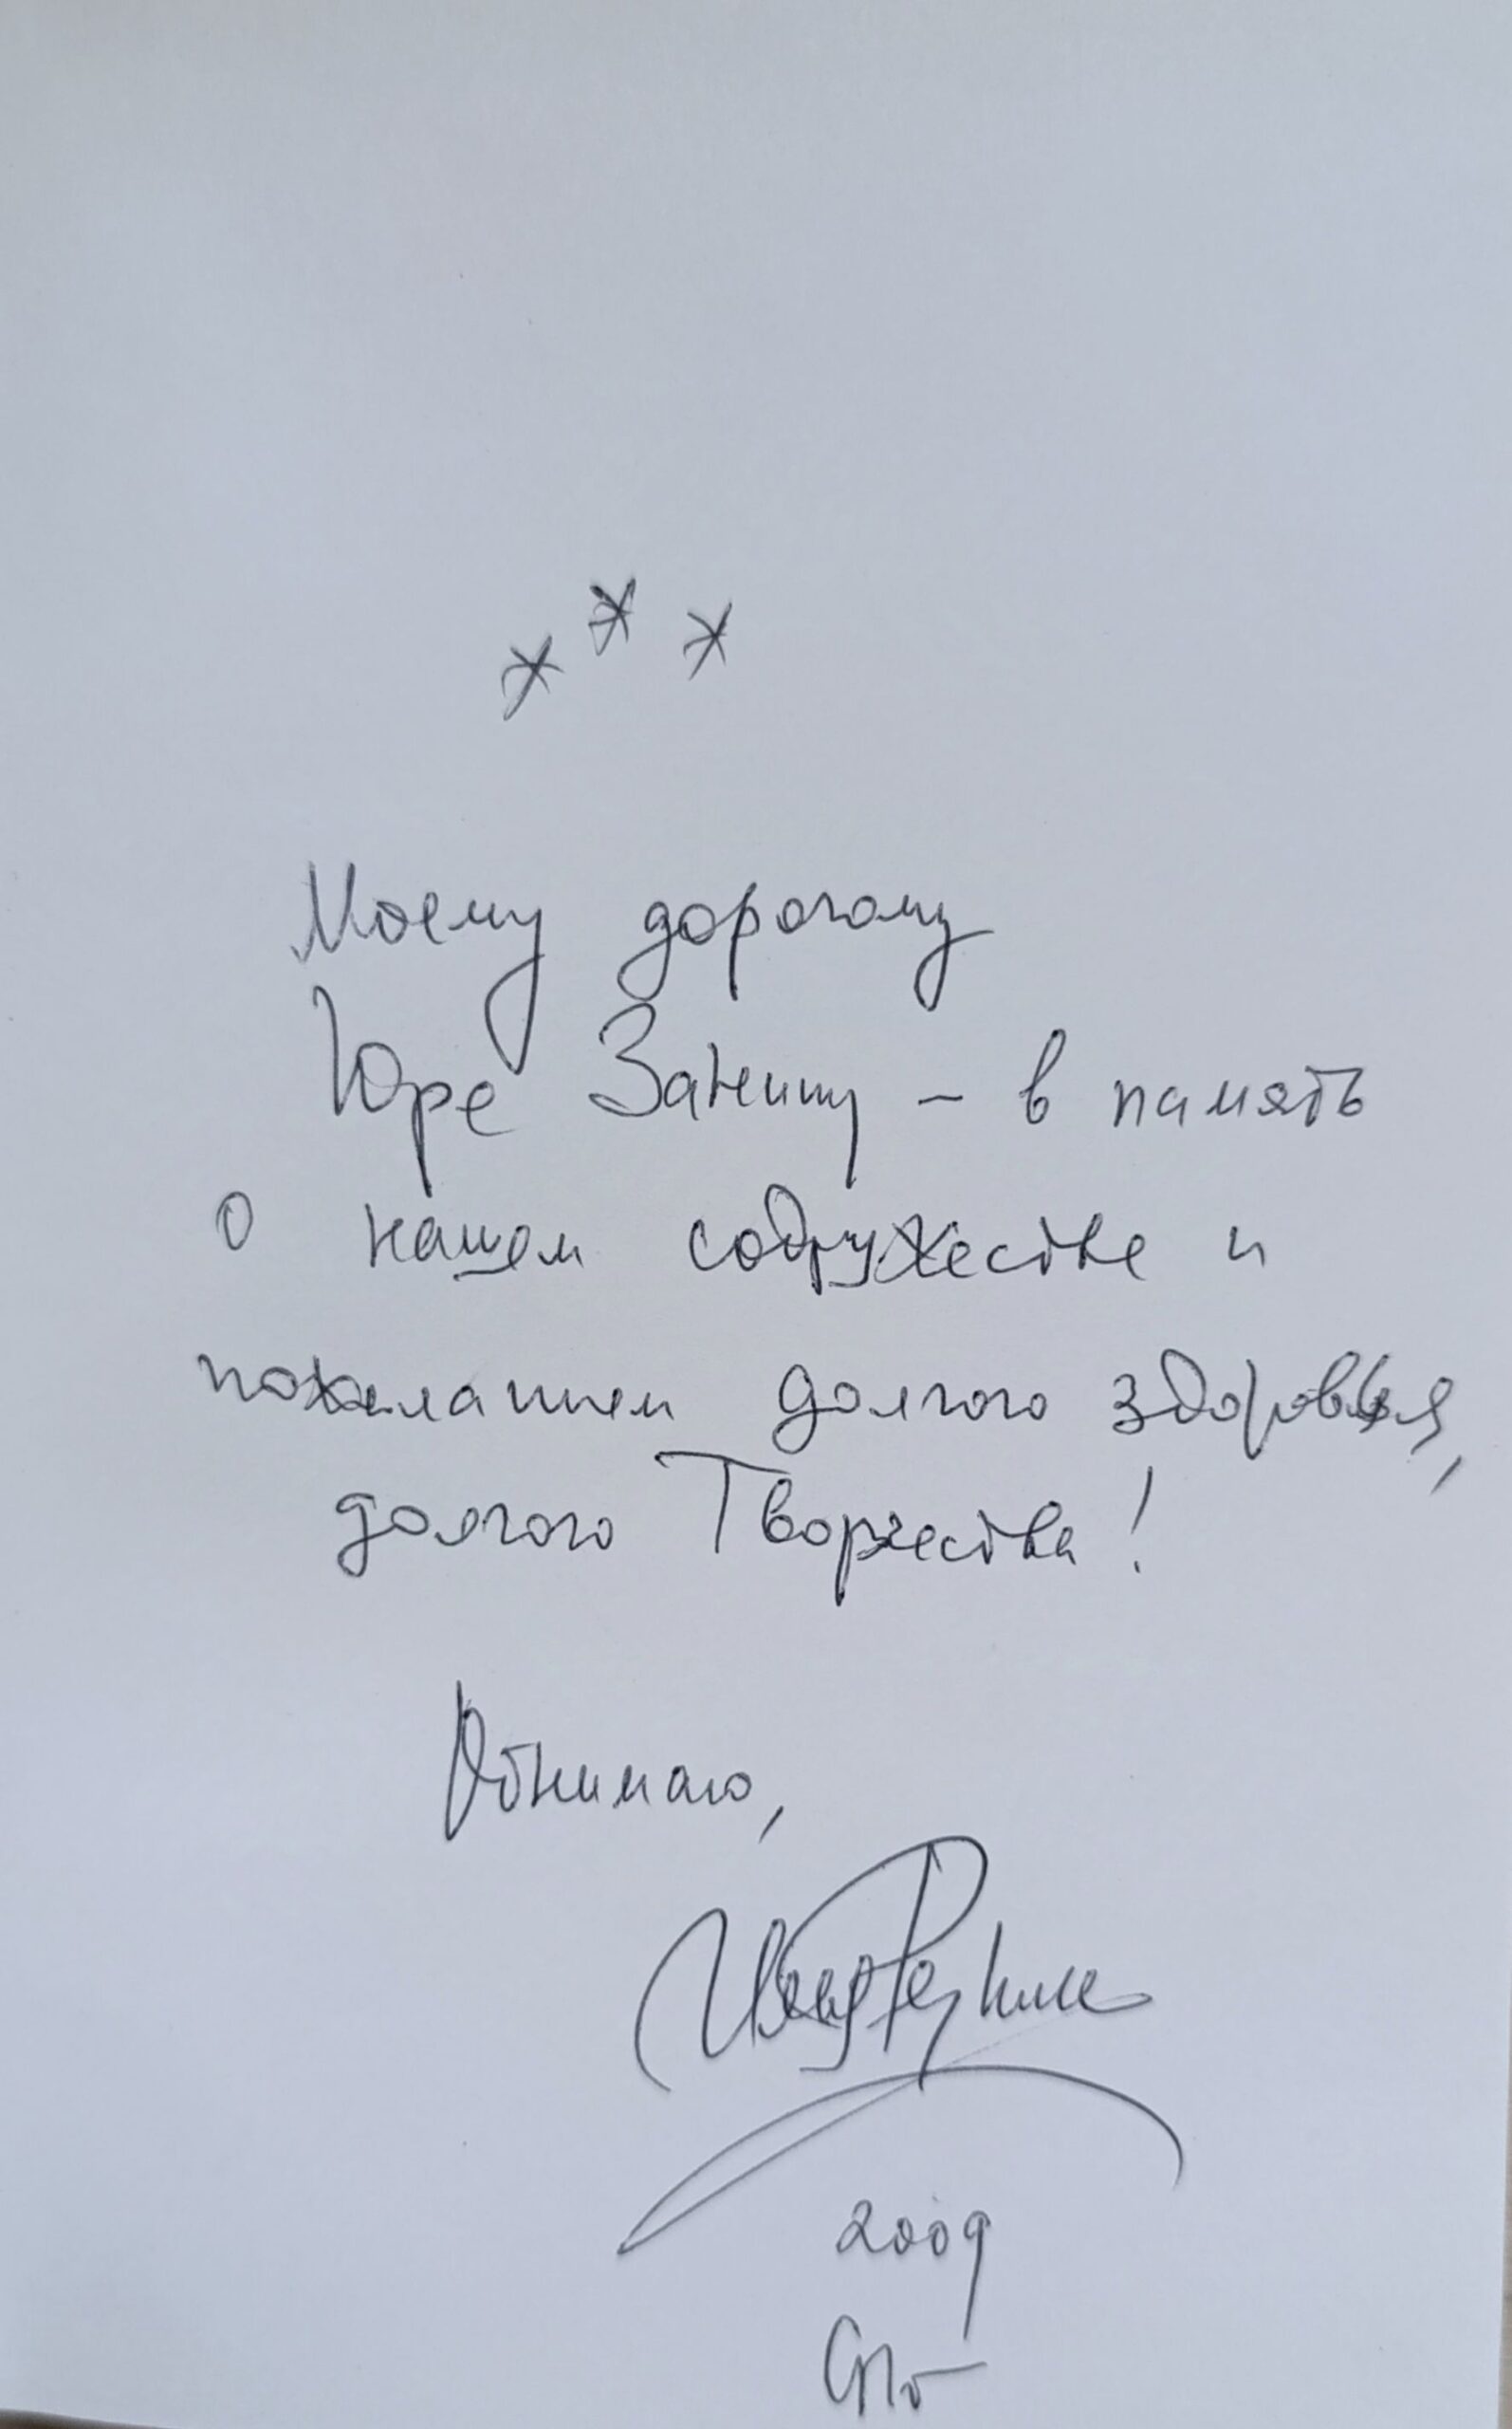 * * *
Моему дорогому
Юре Занину – в память
о нашем содружестве и
пожеланием долгого здоровья,
долгого Творчества!
Обнимаю,
Илья Резник
2009
СПб